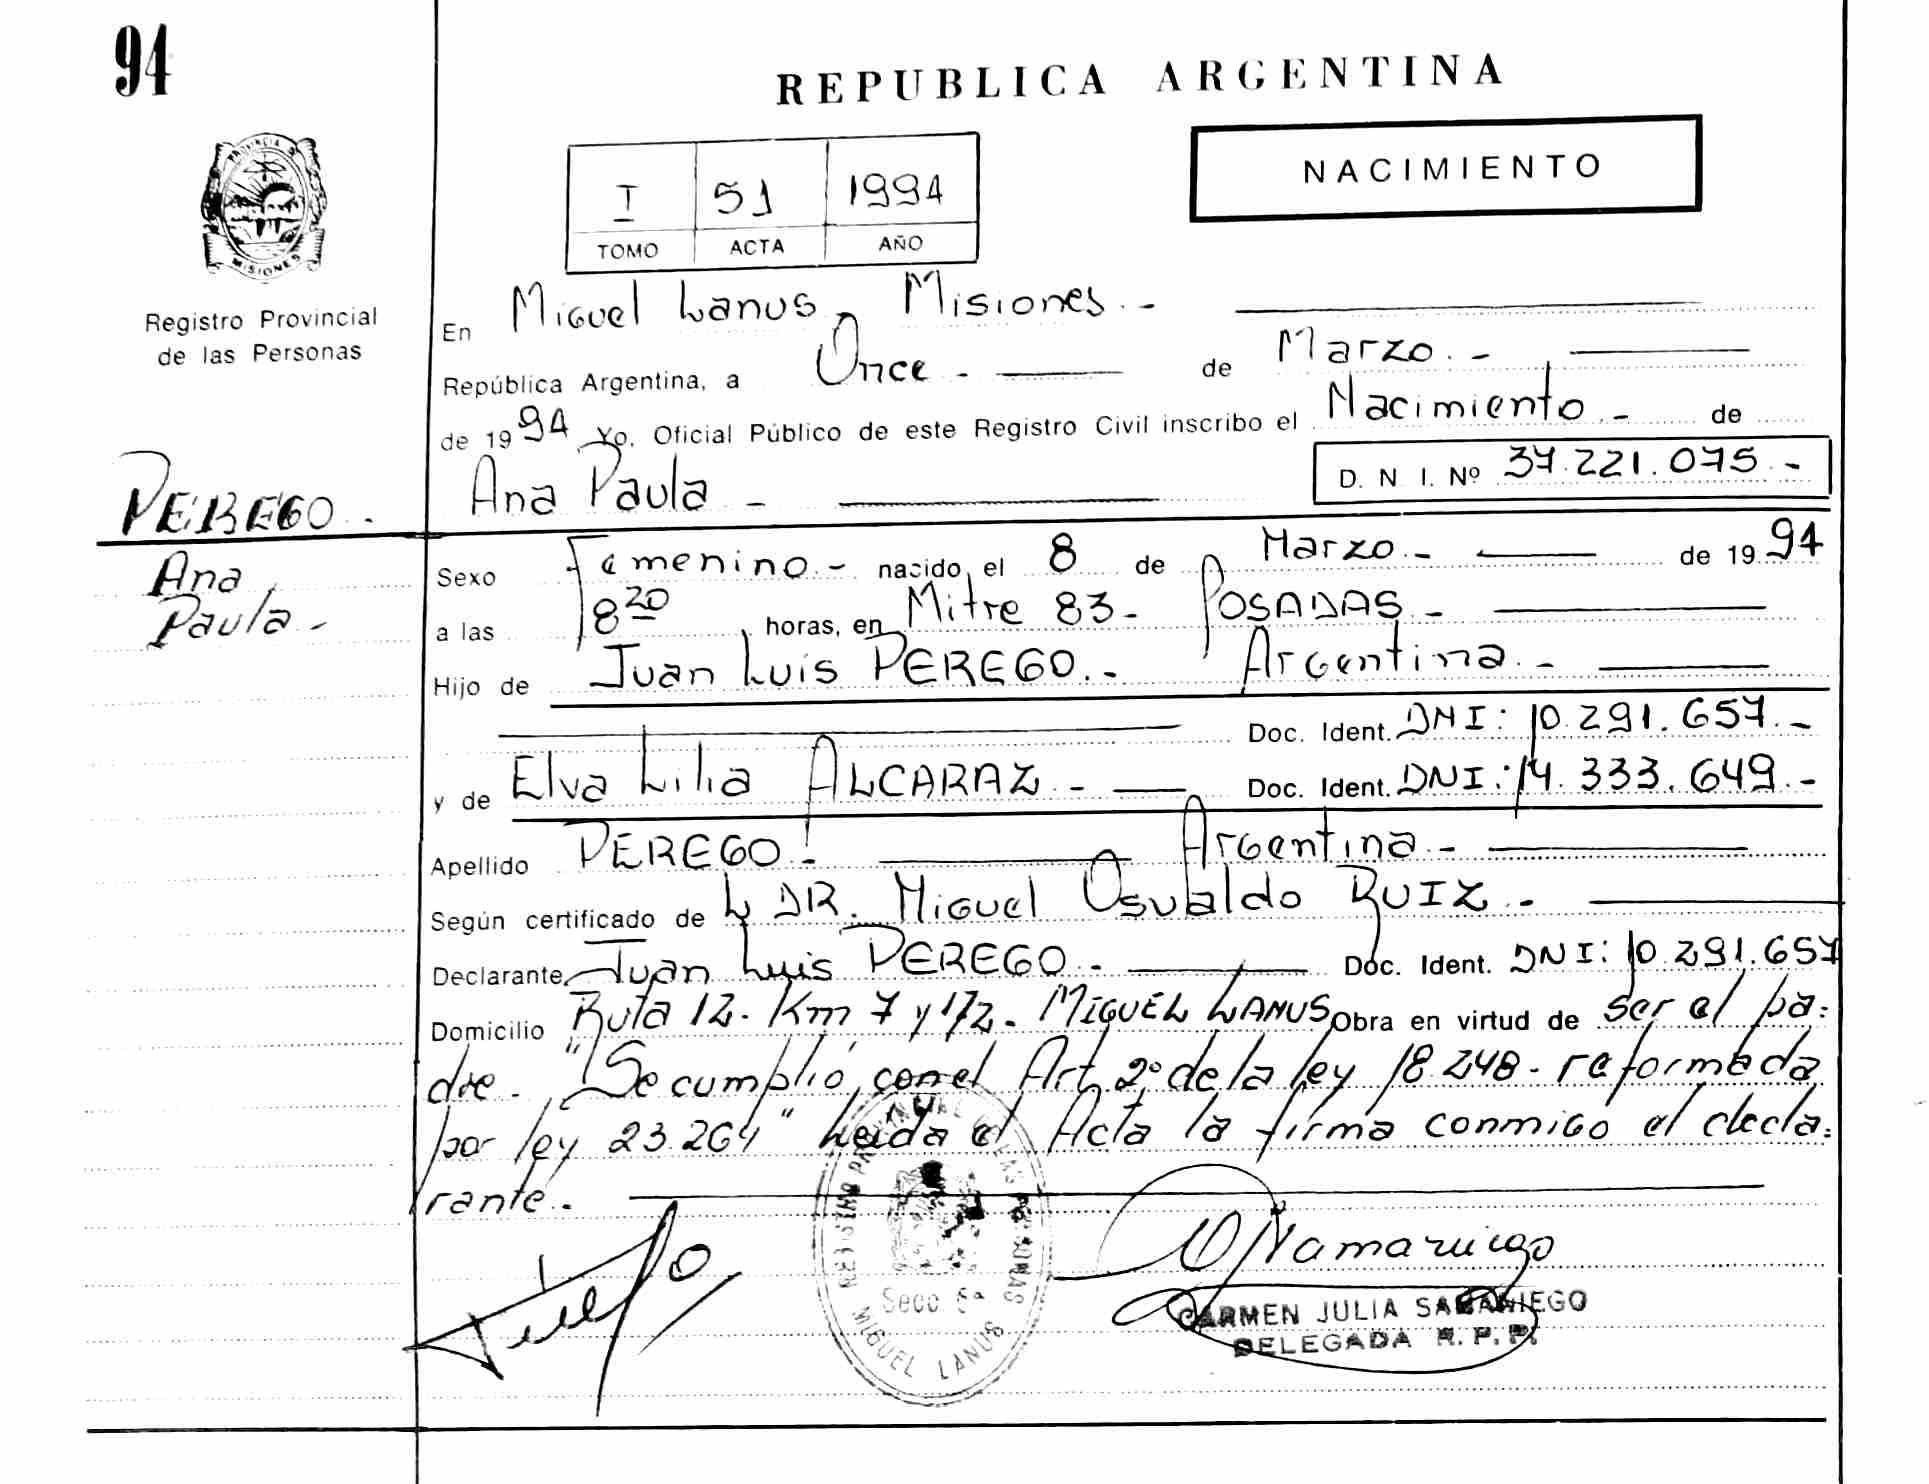 94
REPUBLICA ARGENTINA
NACIMIENTO
I 51 1994
TOMO ACTA AÑO
PROVINCIA DE
MISIONES
Registro Provincial
de las Personas
En Miguel Lanus, Misiones.-
República Argentina, a Once.- de Marzo.-
de 1994 Yo, Oficial Público de este Registro Civil inscribo el Nacimiento.- de
Ana Paula- D. N. I. Nº 37.221.075.-
PEREGO.
Ana
Paula-
Sexo Femenino.- nacido el 8 de Marzo.- de 1994
a las 8 20 horas, en Mitre 83- POSADAS.-
Hijo de Juan Luis PEREGO.- Argentina.-
Doc. Ident. DNI: 10.291.657.-
y de Elva Lilia ALCARAZ.- Doc. Ident. DNI: 14.333.649.-
Apellido PEREGO.- Argentina.-
Según certificado de L DR. Miguel Osvaldo RUIZ.-
Declarante Juan Luis PEREGO.- Doc. Ident. DNI: 10.291.657
Domicilio Ruta 12. Km 7 y 1/2. MIGUEL LANUS Obra en virtud de ser el pa=
dre. "Se cumplió con el Art. 2º de la ley 18.248- reformada
por ley 23.264" Leida el Acta la firma conmigo el decla=
rante.-
REGISTRO PROVINCIAL DE LAS PERSONAS
Secc. 8ª
MIGUEL LANUS
CARMEN JULIA SAMANIEGO
DELEGADA R. P. P.